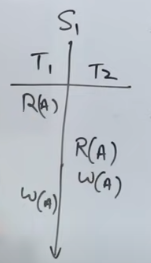 S₁
T₁ T₂
R(A)
R(A)
W(A)
W(A)